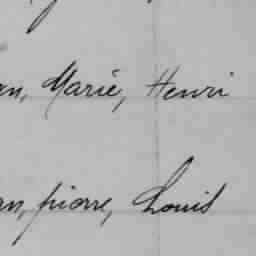 an, Marie, Henri
an, pierre, Louis